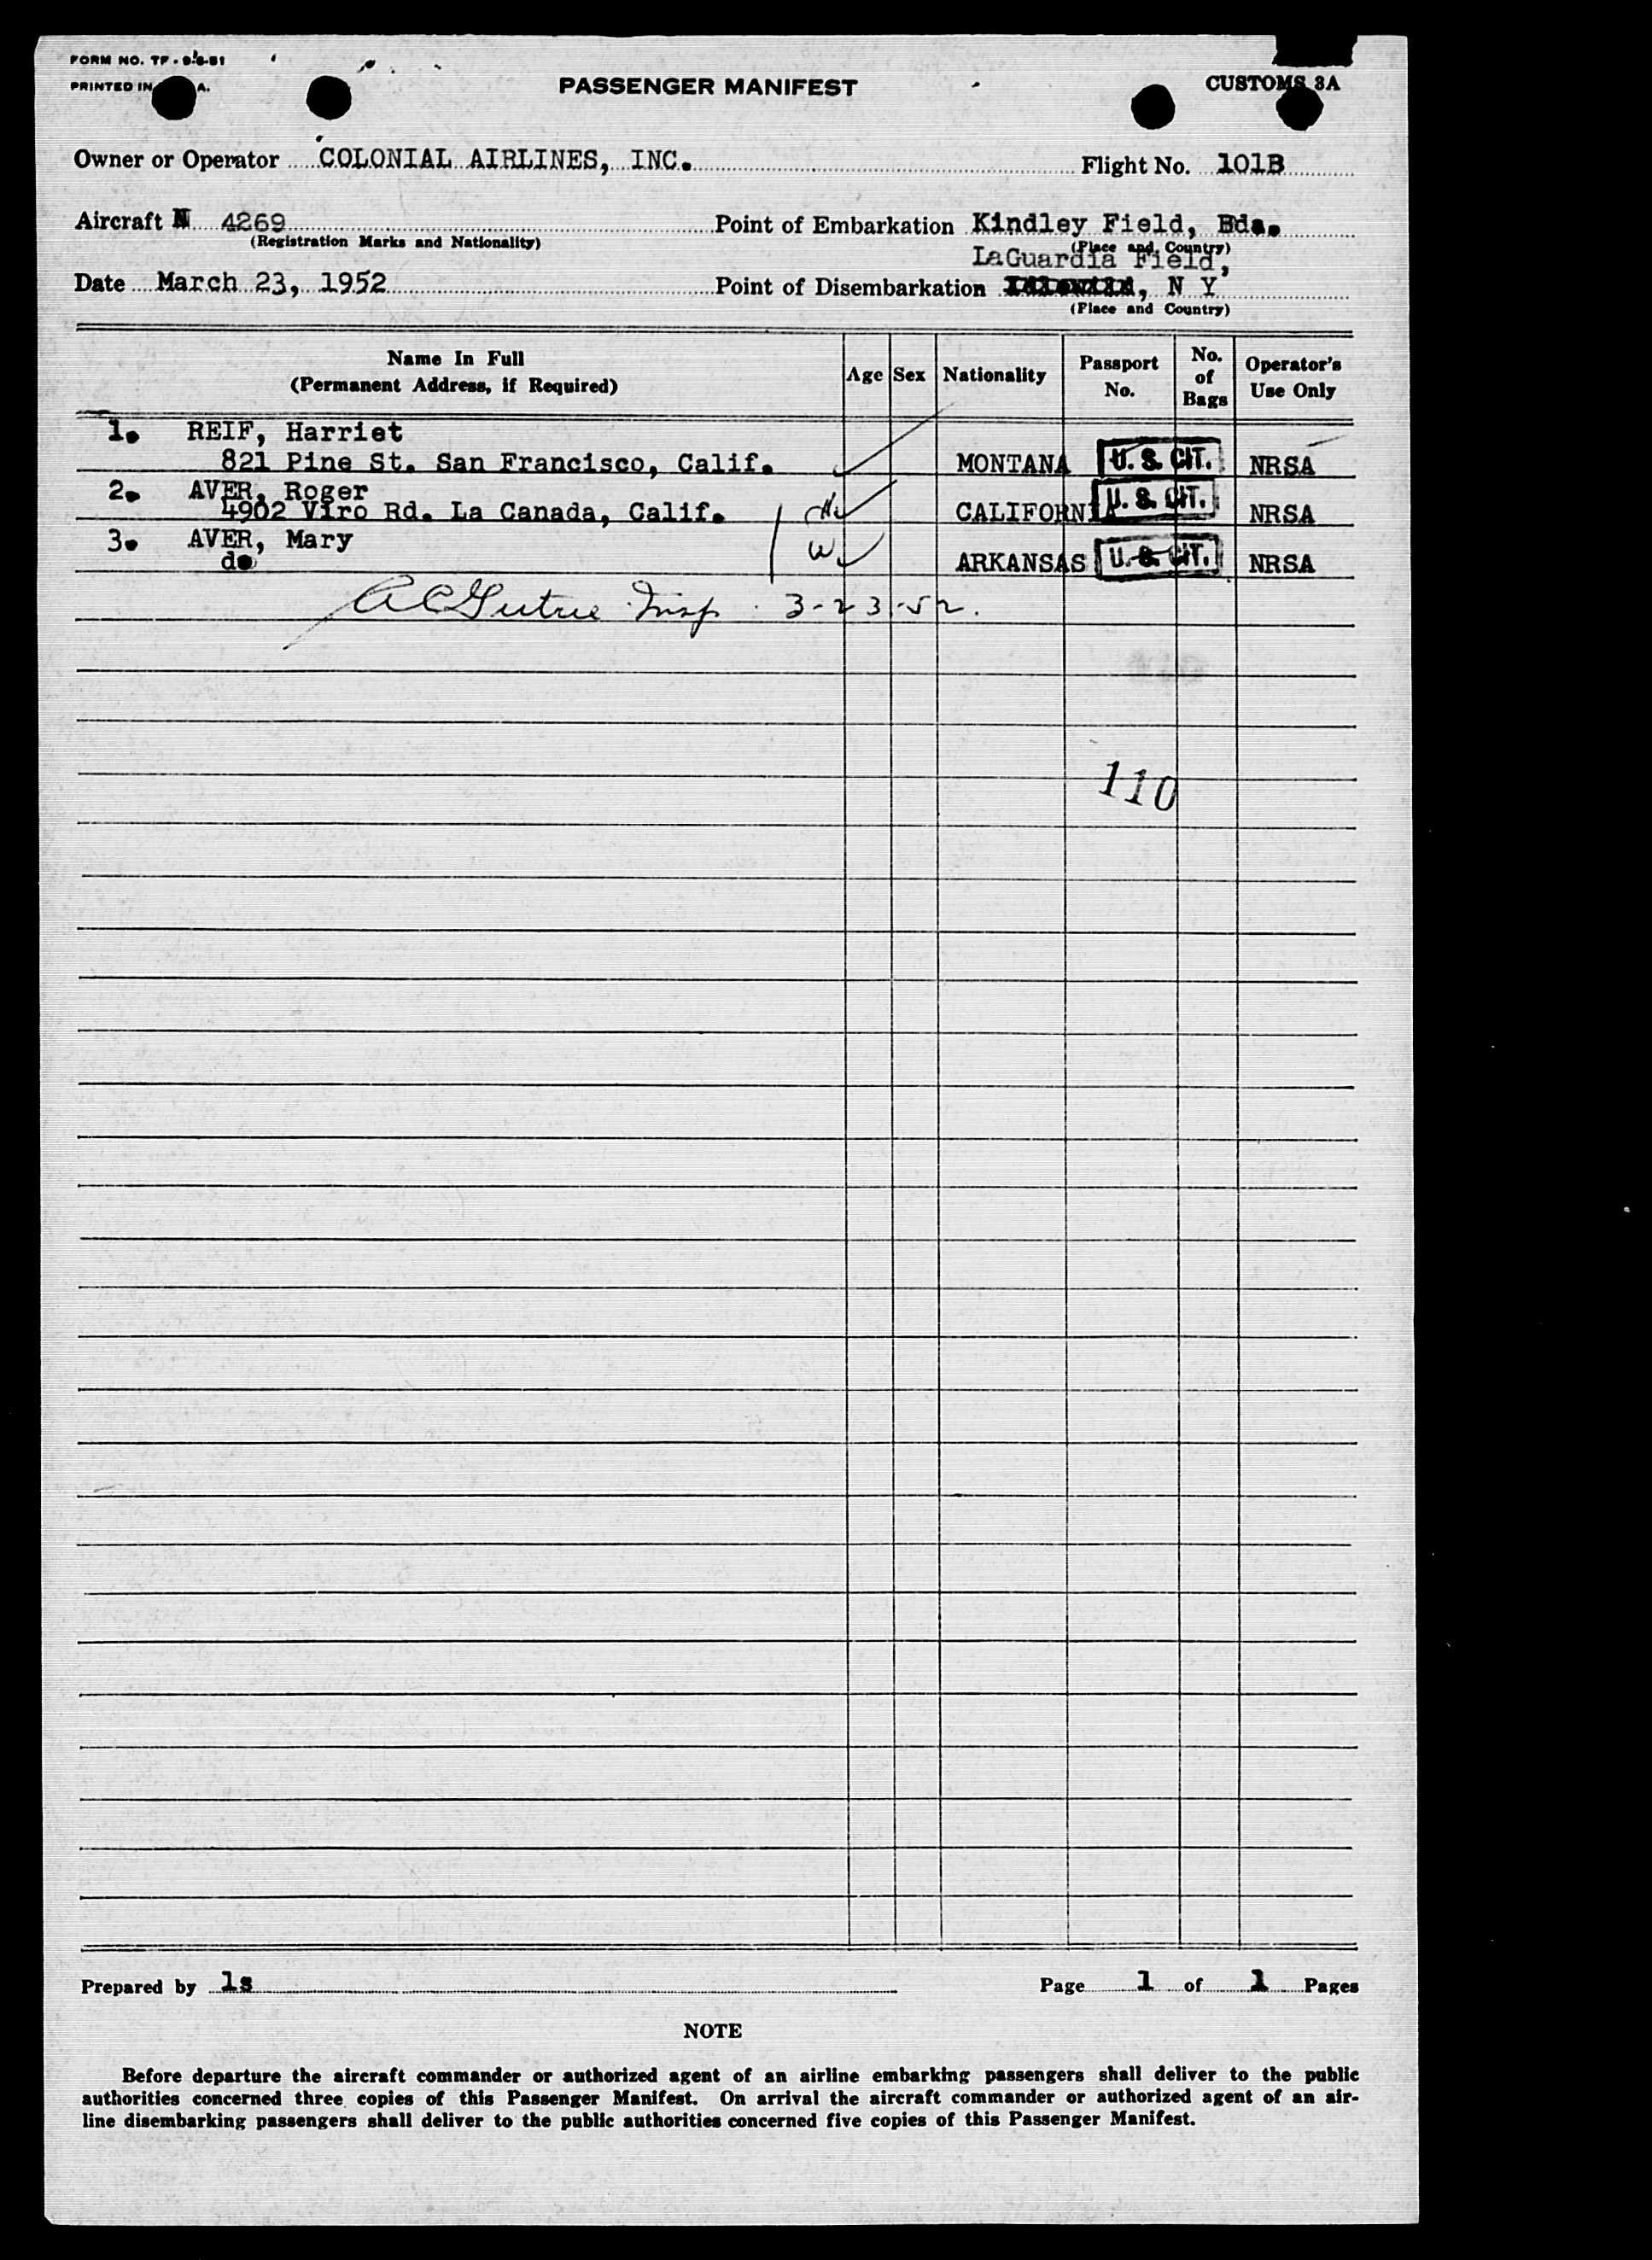 FORM NO. TF - 9-8-51
PRINTED IN A.
PASSENGER MANIFEST
CUSTOMS 3A
Owner or Operator COLONIAL AIRLINES, INC. Flight No. 101B
Aircraft N 4269 Point of Embarkation Kindley Field, Bda.
(Registration Marks and Nationality) (Place and Country)
LaGuardia Field,
Date March 23, 1952 Point of Disembarkation , N Y
(Place and Country)
Name In Full (Permanent Address, if Required) Age Sex Nationality Passport No. No. of Bags Operator's Use Only
1. REIF, Harriet
821 Pine St. San Francisco, Calif. MONTANA U. S. CIT. NRSA
2. AVER, Roger
4902 Viro Rd. La Canada, Calif. H CALIFORNIA U. S. CIT. NRSA
3. AVER, Mary
do W ARKANSAS U. S. CIT. NRSA
Insp. 3-23-52.
110
Prepared by ls Page 1 of 1 Pages
NOTE
Before departure the aircraft commander or authorized agent of an airline embarking passengers shall deliver to the public
authorities concerned three copies of this Passenger Manifest. On arrival the aircraft commander or authorized agent of an air-
line disembarking passengers shall deliver to the public authorities concerned five copies of this Passenger Manifest.